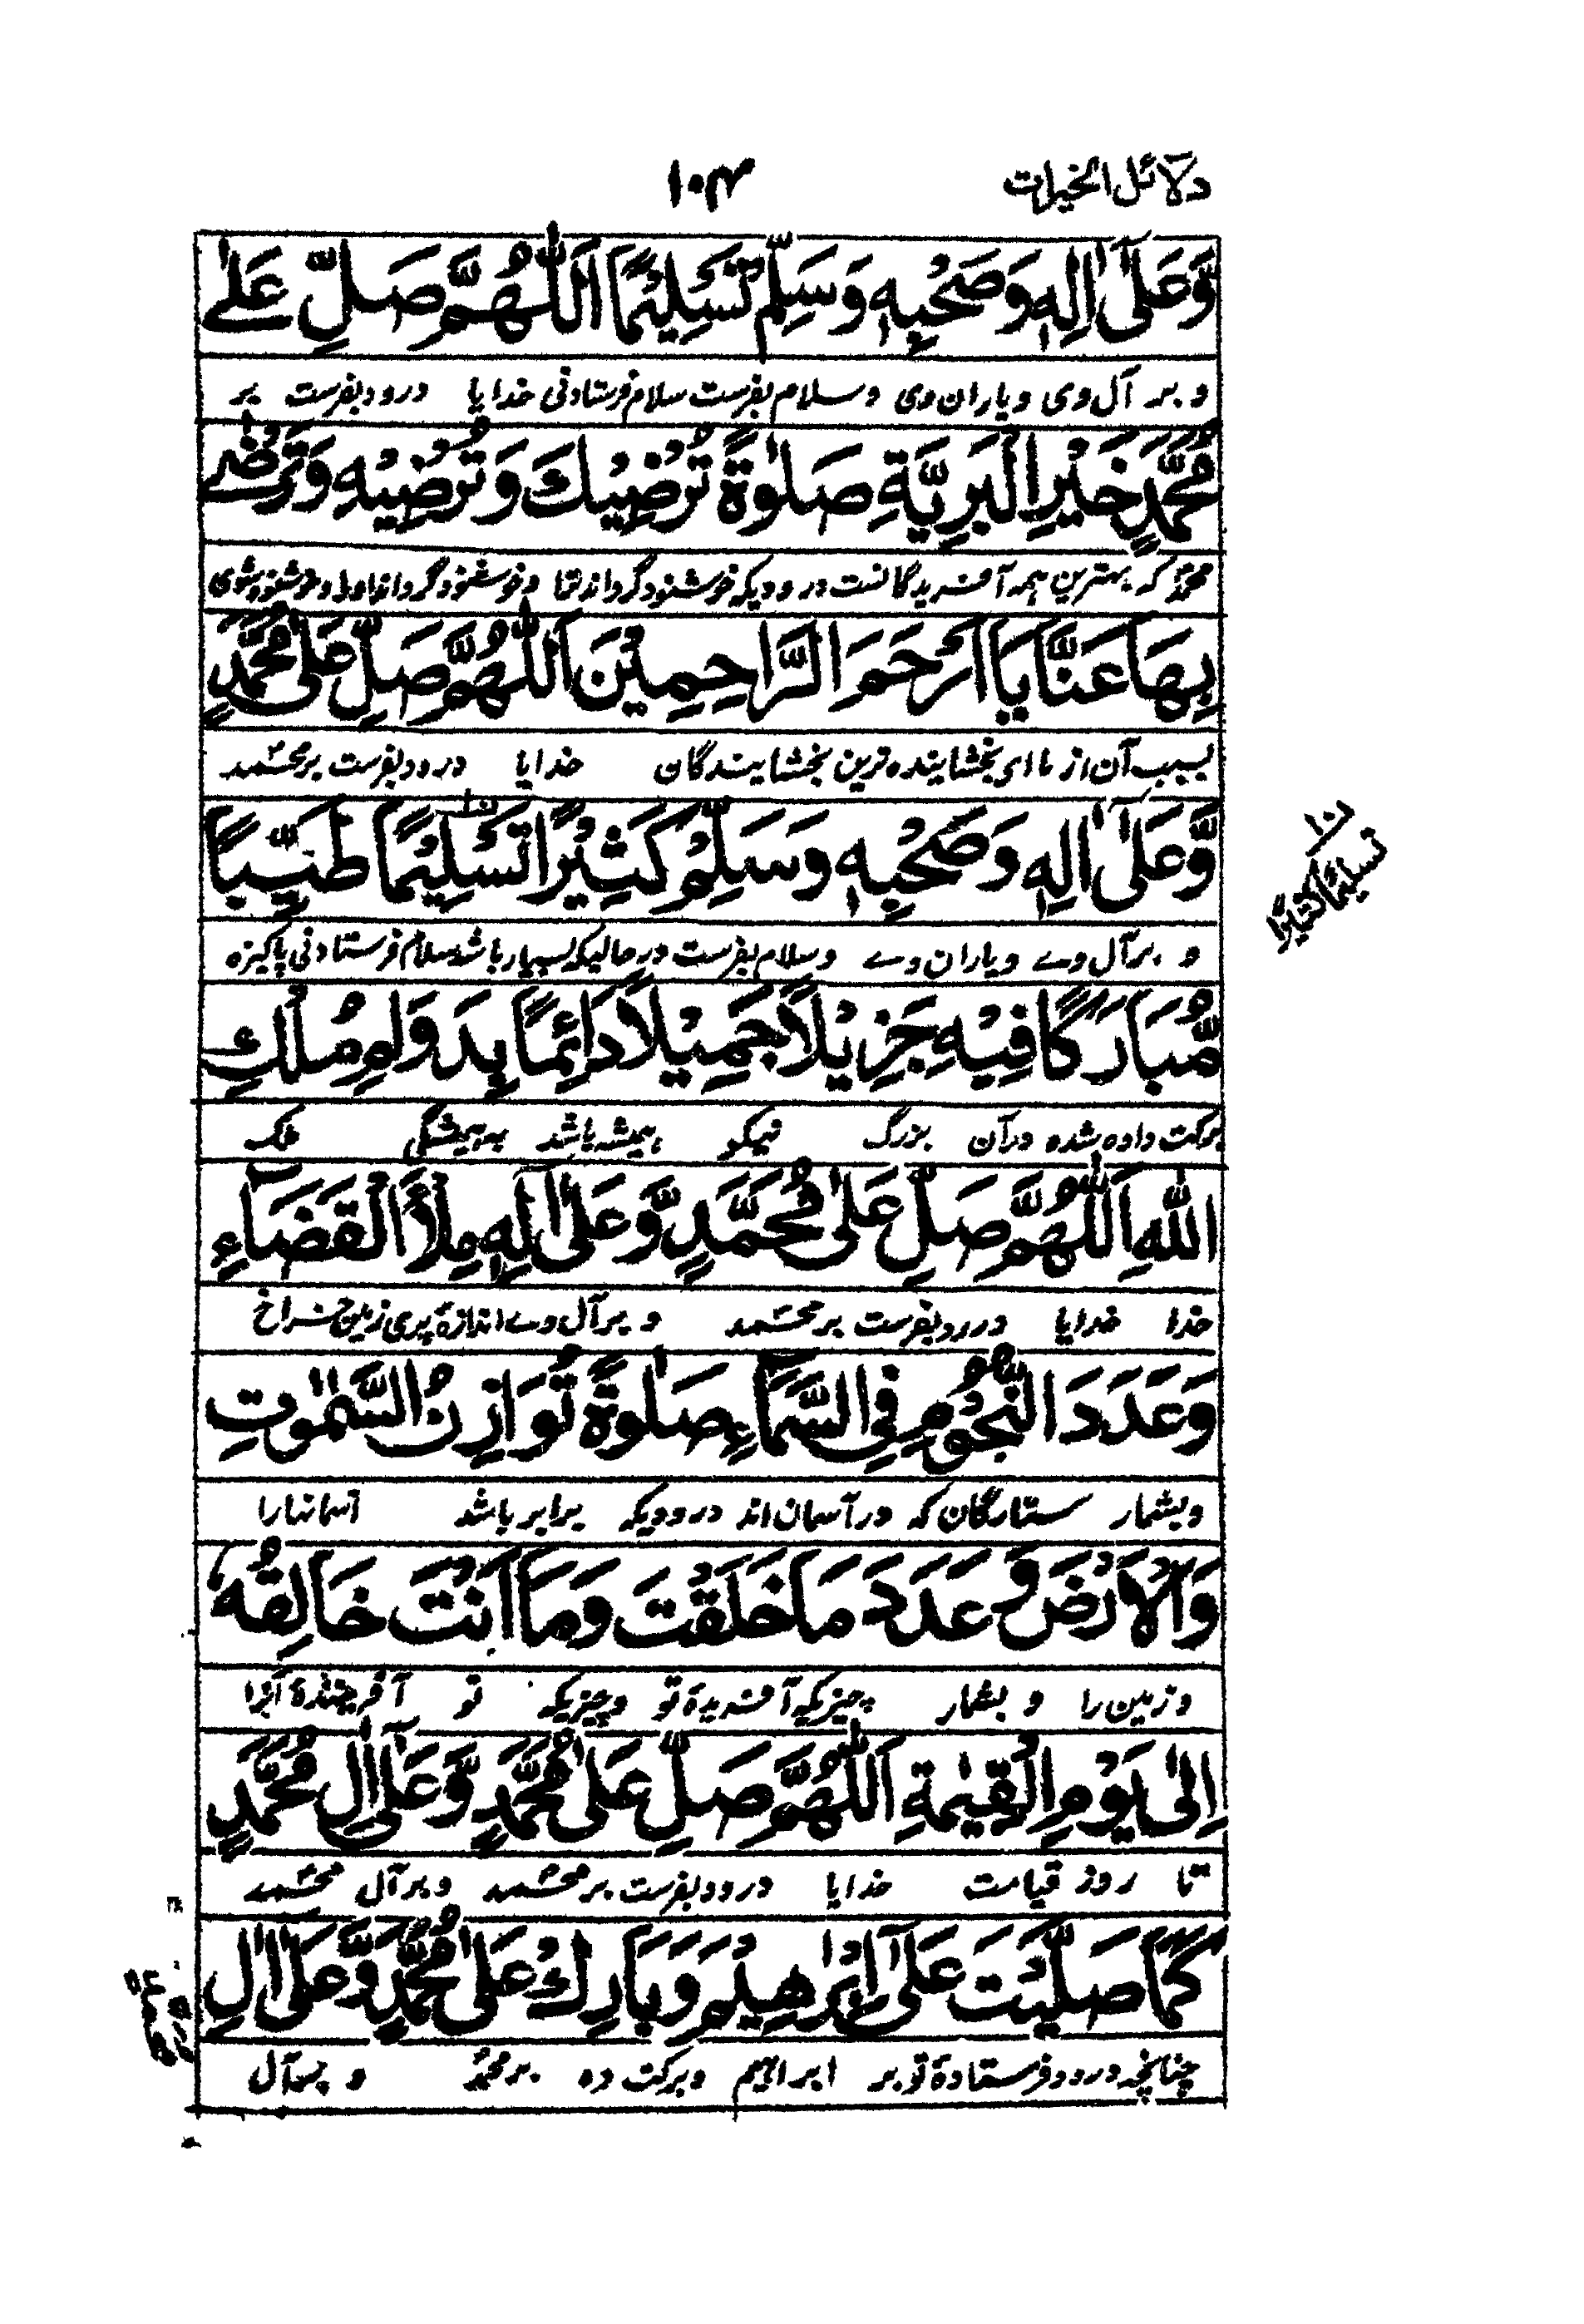 دلائل الخیرات ۱۰۴
وَّعَلٰٓى اٰلِهٖ وَصَحْبِهٖ وَسَلِّمْ تَسْلِيْمًا اَللّٰهُمَّ صَلِّ عَلٰے
و بر آل وی و یاران وی و سلام بفرست سلام فرستادنی خدایا درود بفرست بر
مُحَمَّدٍ خَيْرِ الْبَرِيَّةِ صَلٰوةً تُرْضِيْكَ وَتُرْضِيْهِ وَتَرْضٰے
محمدؐ که بهترین همه آفریدگانست درودیکه خوشنود گرداند ترا و خوشنود گرداند او را و خوشنود شوی
بِهَا عَنَّا يَا اَرْحَمَ الرَّاحِمِيْنَ اَللّٰهُمَّ صَلِّ عَلٰى مُحَمَّدٍ
بسبب آن از ما ای بخشاینده ترین بخشایندگان خدایا درود بفرست بر محمد
وَّعَلٰٓى اٰلِهٖ وَصَحْبِهٖ وَسَلِّمْ كَثِيْرًا تَسْلِيْمًا طَيِّبًا
تسلیمًا کثیرًا
و بر آل وے و یاران وے و سلام بفرست در حالیکه بسیار باشد سلام فرستادنی پاکیزه
مُّبَارَكًا فِيْهِ جَزِيْلًا جَمِيْلًا دَائِمًا بِدَوَامِ مُلْكِ
برکت داده شده در آن بزرگ نیکو همیشه باشد به همیشگی ملک
اللّٰهِ اَللّٰهُمَّ صَلِّ عَلٰى مُحَمَّدٍ وَّعَلٰٓى اٰلِهٖ مِلْأَ الْفَضَآءِ
خدا خدایا درود بفرست بر محمد و بر آل وے اندازهٔ پری زمین فراخ
وَعَدَدَ النُّجُوْمِ فِى السَّمَآءِ صَلٰوةً تُوَازِنُ السَّمٰوٰتِ
و بشمار ستارگان که در آسمان اند درودیکه برابر باشد آسمانها را
وَالْاَرْضَ وَعَدَدَ مَا خَلَقْتَ وَمَآ اَنْتَ خَالِقُهٗ
و زمین را و بشمار چیزیکه آفریدهٔ تو و چیزیکه تو آفرینندهٔ آنرا
اِلٰى يَوْمِ الْقِيٰمَةِ اَللّٰهُمَّ صَلِّ عَلٰى مُحَمَّدٍ وَّعَلٰٓى اٰلِ مُحَمَّدٍ
تا روز قیامت خدایا درود بفرست بر محمد و بر آل محمد
كَمَا صَلَّيْتَ عَلٰٓى اِبْرٰهِيْمَ وَبَارِكْ عَلٰى مُحَمَّدٍ وَّعَلٰٓى اٰلِ
چنانچه درود فرستادهٔ تو بر ابراهیم و برکت ده بر محمدؐ و بر آل